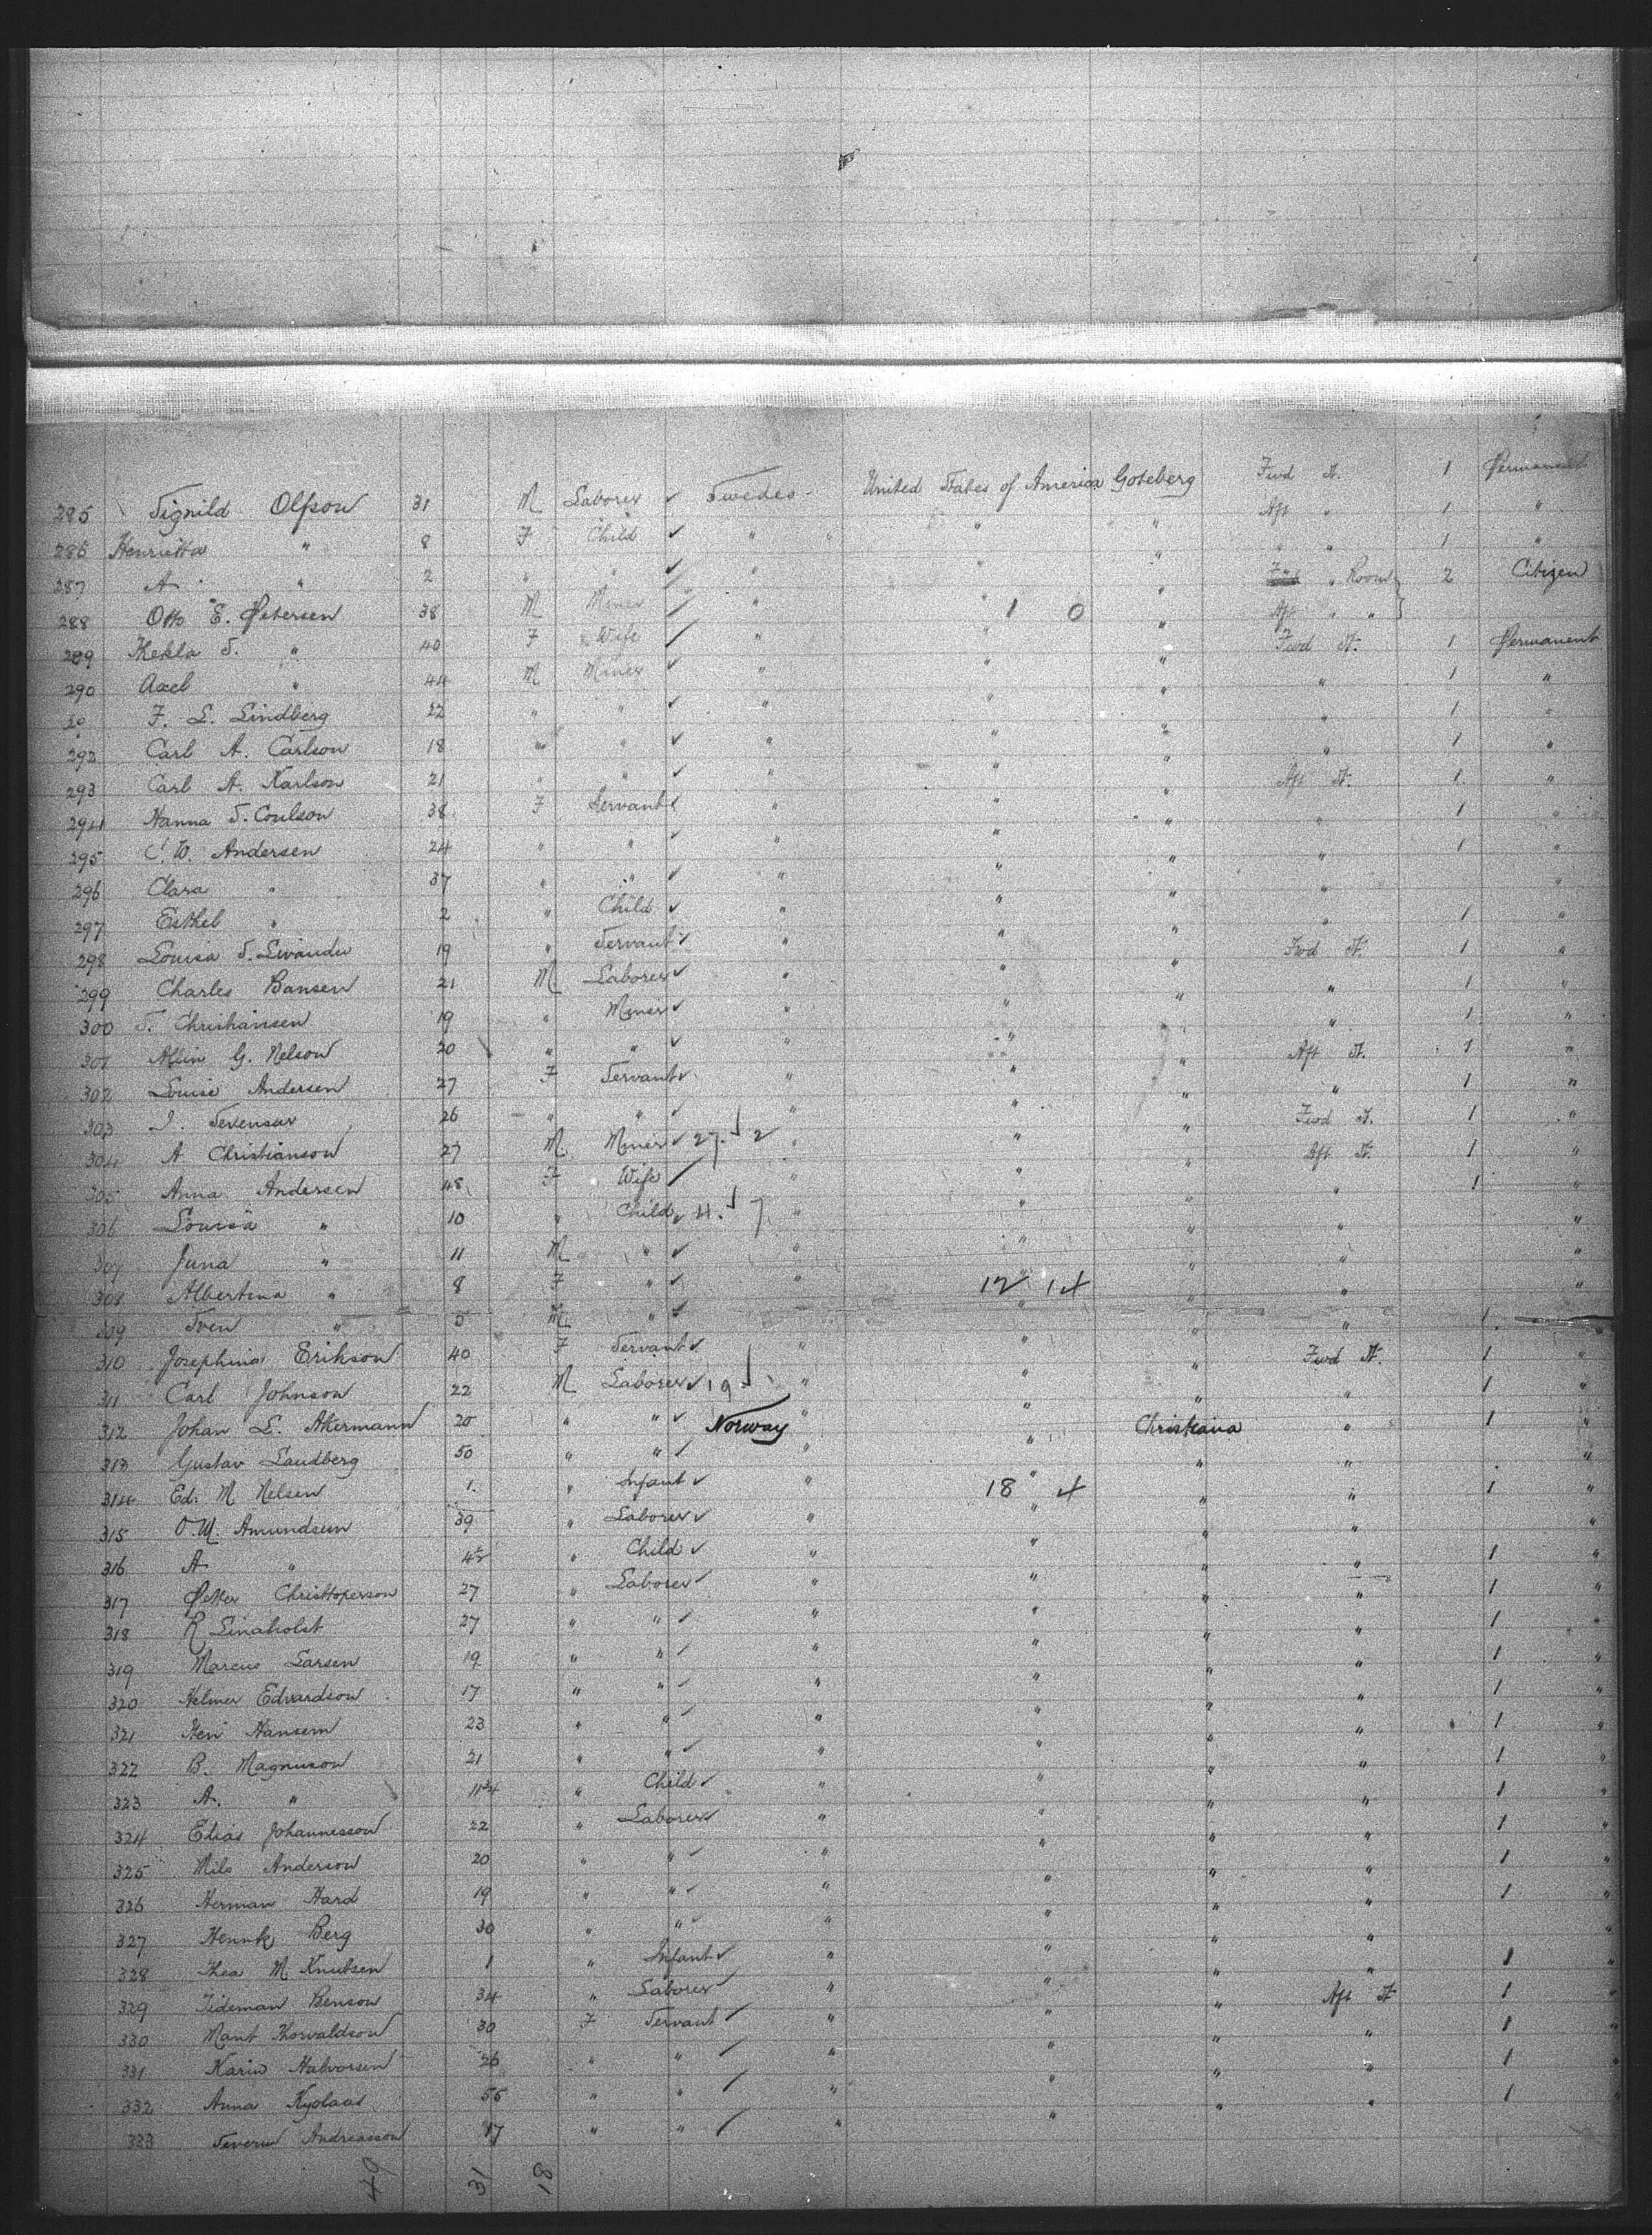 285 Signild Olfson 31 M Laborer ✓ Sweden United States of America Goteberg Fwd St. 1 Permanent
286 Henrietta " 8 F Child ✓ " " " Aft " 1 "
287 A. " 2 " " ✓ " " " " " 1 "
288 Otto E. Petersen 38 M Miner / " " " " Room 2 Citizen
289 Hekla S. " 40 F Wife / " 1 0 " Aft " "
290 Axel " 44 M Miner ✓ " " " Fwd St. 1 Permanent
29 F. L. Lindberg 22 " " ✓ " " " " 1 "
292 Carl A. Carlson 18 " " ✓ " " " " 1 "
293 Carl A. Karlson 21 " " ✓ " " " " 1 "
294 Hanna S. Coulson 38 F Servant ✓ " " " Aft St. 1 "
295 C. W. Andersen 24 " " ✓ " " " " 1 "
296 Clara " 37 " " ✓ " " " " 1 "
297 Esthel " 2 " Child ✓ " " " " "
298 Louisa S. 19 " Servant ✓ " " " " 1 "
299 Charles Bansen 21 M Laborer ✓ " " " Fwd St. 1 "
300 S. Christiansen 19 " Miner ✓ " " " " 1 "
301 G. Nelson 20 " " ✓ " " " " 1 "
302 Louise Andersen 27 F Servant ✓ " " " Aft St. 1 "
303 26 " " ✓ " " " " 1 "
304 A Christianson 27 M Miner ✓ 27. 2 " " " Fwd St. 1 "
305 Anna Andersen 48 F Wife / " " " Aft St. 1 "
306 Louisa " 10 " Child ✓ 4. 7 " " " " 1 "
307 Juna " 11 M " ✓ " " " " "
308 Albertina " 8 F " ✓ " " " " "
309 Sven " 5 M " ✓ 12 14 " " "
310 Josephina Erikson 40 F Servant ✓ " " " " 1 "
311 Carl Johnson 22 M Laborer ✓ 19 " " " Fwd St. 1 "
312 Johan L. Akermann 20 " " ✓ " " " " 1 "
313 Gustav Landberg 50 " " ✓ Norway " Christiana " 1 "
314 Ed. M Nelsen 1 " Infant ✓ " " " " "
315 O. M. Amundsen 39 " Laborer ✓ " 18 4 " " 1 "
316 A. " 4½ " Child ✓ " " " " "
317 Petter Christtoperson 27 " Laborer ✓ " " " " 1 "
318 R Linaholst 27 " " ✓ " " " " 1 "
319 Marcus Larsen 19 " " ✓ " " " " 1 "
320 Helmer Edvardson 17 " " ✓ " " " " 1 "
321 Hansem 23 " " ✓ " " " " 1 "
322 B. Magnuson 21 " " ✓ " " " " 1 "
323 A. " 11¾ " Child ✓ " " " " 1 "
324 Elias Johannesson 22 " Laborer ✓ " " " " 1 "
325 Nils Anderson 20 " " ✓ " " " " 1 "
326 Herman Hard 19 " " ✓ " " " " 1 "
327 Henrik Berg 30 " " ✓ " " " " 1 "
328 Thea M Knutsen 1 " Infant ✓ " " " " "
329 Tideman Benson 34 " Laborer ✓ " " " " 1 "
330 Thorvaldson 30 F Servant / " " " Aft St 1 "
331 Karin Halvorsen 26 " " / " " " " 1 "
332 Anna 55 " " / " " " " 1 "
333 Andreasson 17 " " / " " " " 1 "
49 31 18